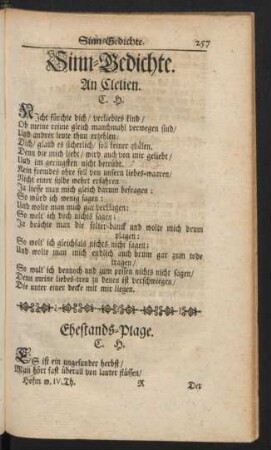 Sinn-Gedichte. 257
Sinn-Gedichte.
An Clelien.
C. H.
NIcht fürchte dich/ verliebtes kind/
Ob meine reime gleich manchmahl verwegen sind/
Und andrer leute thun erzehlen:
Dich/ glaub es sicherlich/ soll keiner quälen.
Denn die mich liebt/ wird auch von mir geliebt/
Und im geringsten nicht betrübt.
Kein fremdes ohre soll von unsern liebes-waaren/
Nicht einer sylbe wehrt erfahren
Ja liesse man mich gleich darum befragen:
So würd ich wenig sagen:
Und wolte man mich gar verklagen:
So wolt ich doch nichts sagen:
Ja brächte man die folter-banck und wolte mich drum
plagen:
So wolt ich gleichfals nichts nicht sagen:
Und wolte man mich endlich auch drum gar zum tode
tragen/
So wolt ich dennoch und zum posten nichts nicht sagen/
Denn meine liebes-treu zu denen ist verschwiegen/
Die unter einer decke mit mir liegen.
Ehestands-Plage.
C. H.
ES ist ein ungesunder herbst/
Man hört fast überall von lauter flüssen/
Hofm w. IV. Th. R Der